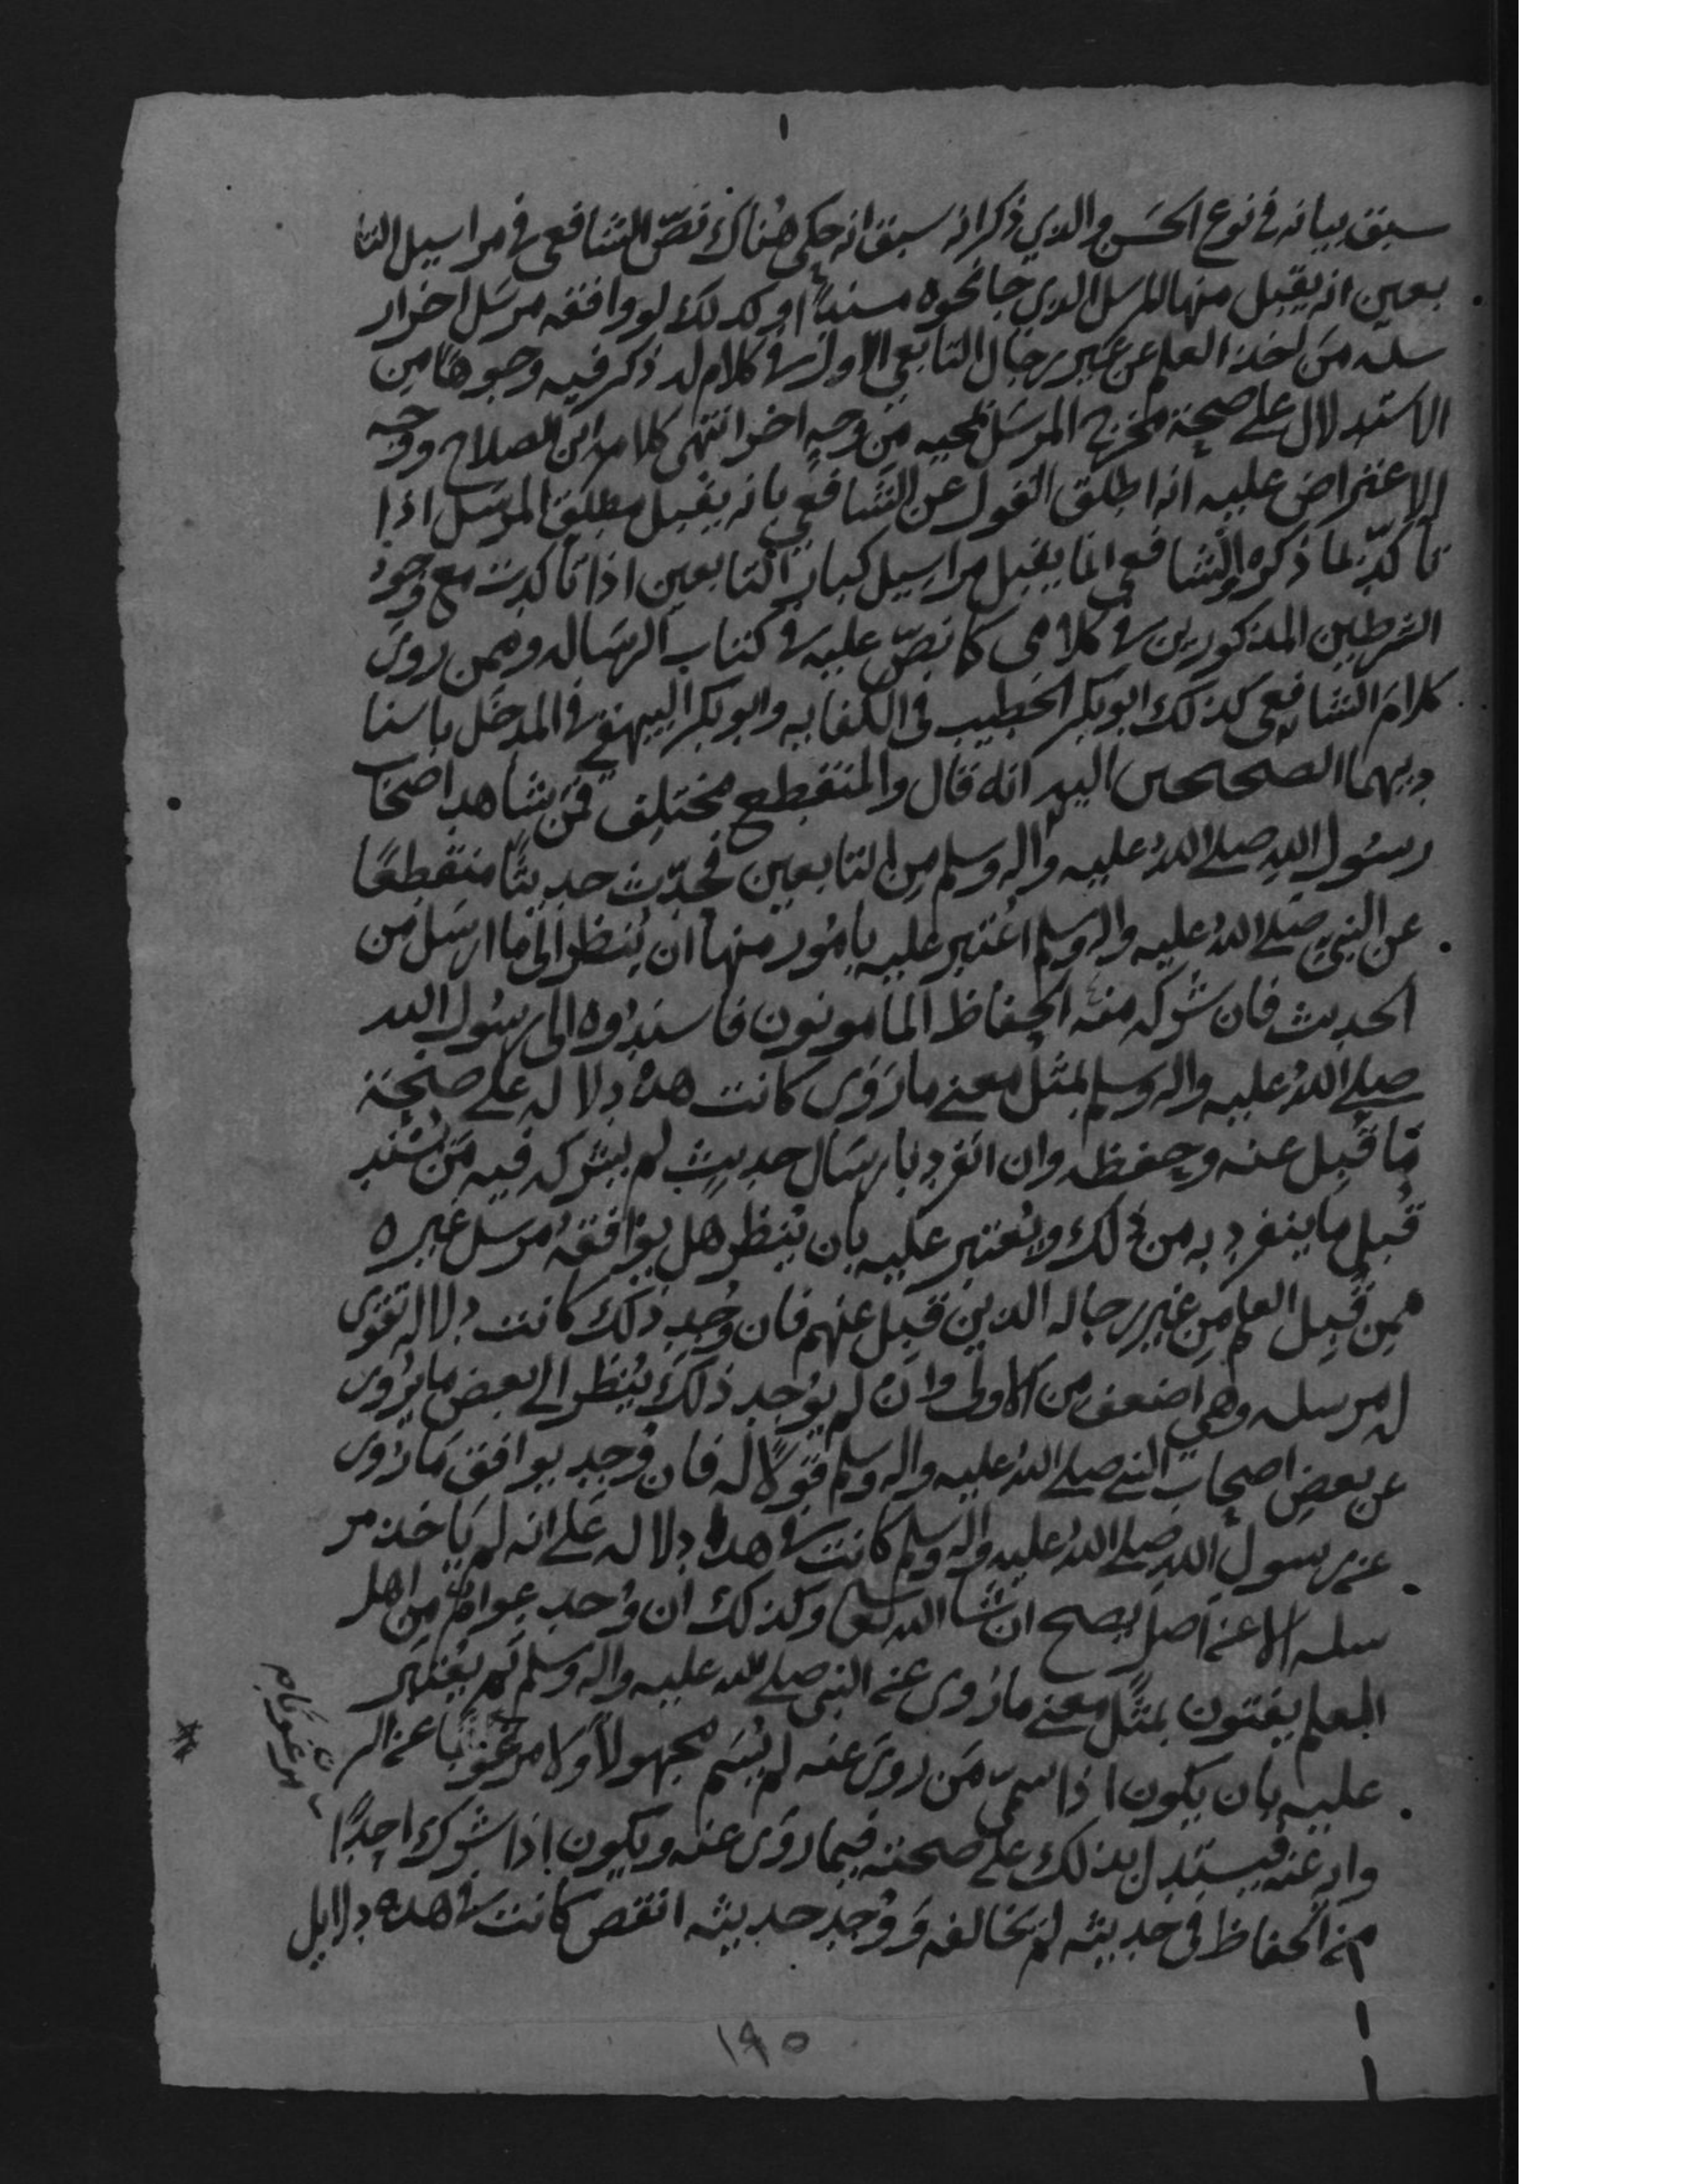 سبق بيانه في نوع الحسن والذي ذكر انه سبق انه حكى هناك نصّ الشافعي في مراسيل التا
بعين انه يقبل منها المرسل الذي جا نحوه مسنداً او كذلك لو وافقه مرسل اخر ار
سله من اخذ العلم عن غير رجال التابعي الاول في كلام له ذكر فيه وجوهًا من
الاستدلال على صحة مخرج المرسل لمجيه من وجهٍ اخر انتهى كلام ابن الصلاح ووجه
الاعتراض عليه انه اطلق القول عن الشافعي بانه يقبل مطلق المرسل اذا
تأكدّ بما ذكره والشافعي انما يقبل مراسيل كبار التابعين اذا تأكدت مع وجود
الشرطين المذكورين في كلامى كما نصّ عليه في كتاب الرساله وممن روى
كلام الشافعي كذلك ابو بكر الخطيب في الكفايه وابو بكر البيهقي في المدخل باسنا
ديهما الصحيحين اليه انه قال والمنقطع مختلف فمن شاهد اصحاب
رسول الله صلى الله عليه واله وسلم من التابعين فحدّث حديثًا منقطعًا
عن النبي صلى الله عليه واله وسلم اعتبر عليه بامور منها ان يُنظر الى ما ارسل من
الحديث فان شركه منه الحفاظ المأمونون فاسندوه الى رسول الله
صلى الله عليه واله وسلم بمثل معنى ما روى كانت هذه دلاله على صحة
ما قبل عنه وحفظه وان انفرد بارسال حديث لم يشركه فيه من يُسْند
قُبل ما ينفرد به من ذلك ويعتبر عليه بان يُنظر هل يوافقه مرسل غيره
ممن قُبل العلم من غير رجاله الذين قبل عنهم فان وُجد ذلك كانت دلاله تقوى
له مرسله وهي اضعف من الاولى وان لم يوجد ذلك يُنظر الى بعض ما يروى
عن بعض اصحاب النبي صلى الله عليه واله وسلم قولاً له فان وُجد يوافق ما روى
عن رسول الله صلى الله عليه واله وسلم كانت في هذه دلاله على انه لم يأخذ مر
سله الا عن اصل يصح ان شا الله تعالى وكذلك ان وُجد عوامٌ من اهل
العلم يفتون بمثل معنى ما روى عن النبي صلى الله عليه واله وسلم ثم يعتبر
عليه بان يكون اذا سمى من روى عنه لم يُسَم مجهولاً ولا مرغوبًا عن الر
وايه عنه فيستدل بذلك على صحته فيما روى عنه ويكون اذا شرك احدًا
من الحفاظ في حديثه لم يخالفه وَوُجد حديثه انقص كانت في هذه دلايل
١٩٥